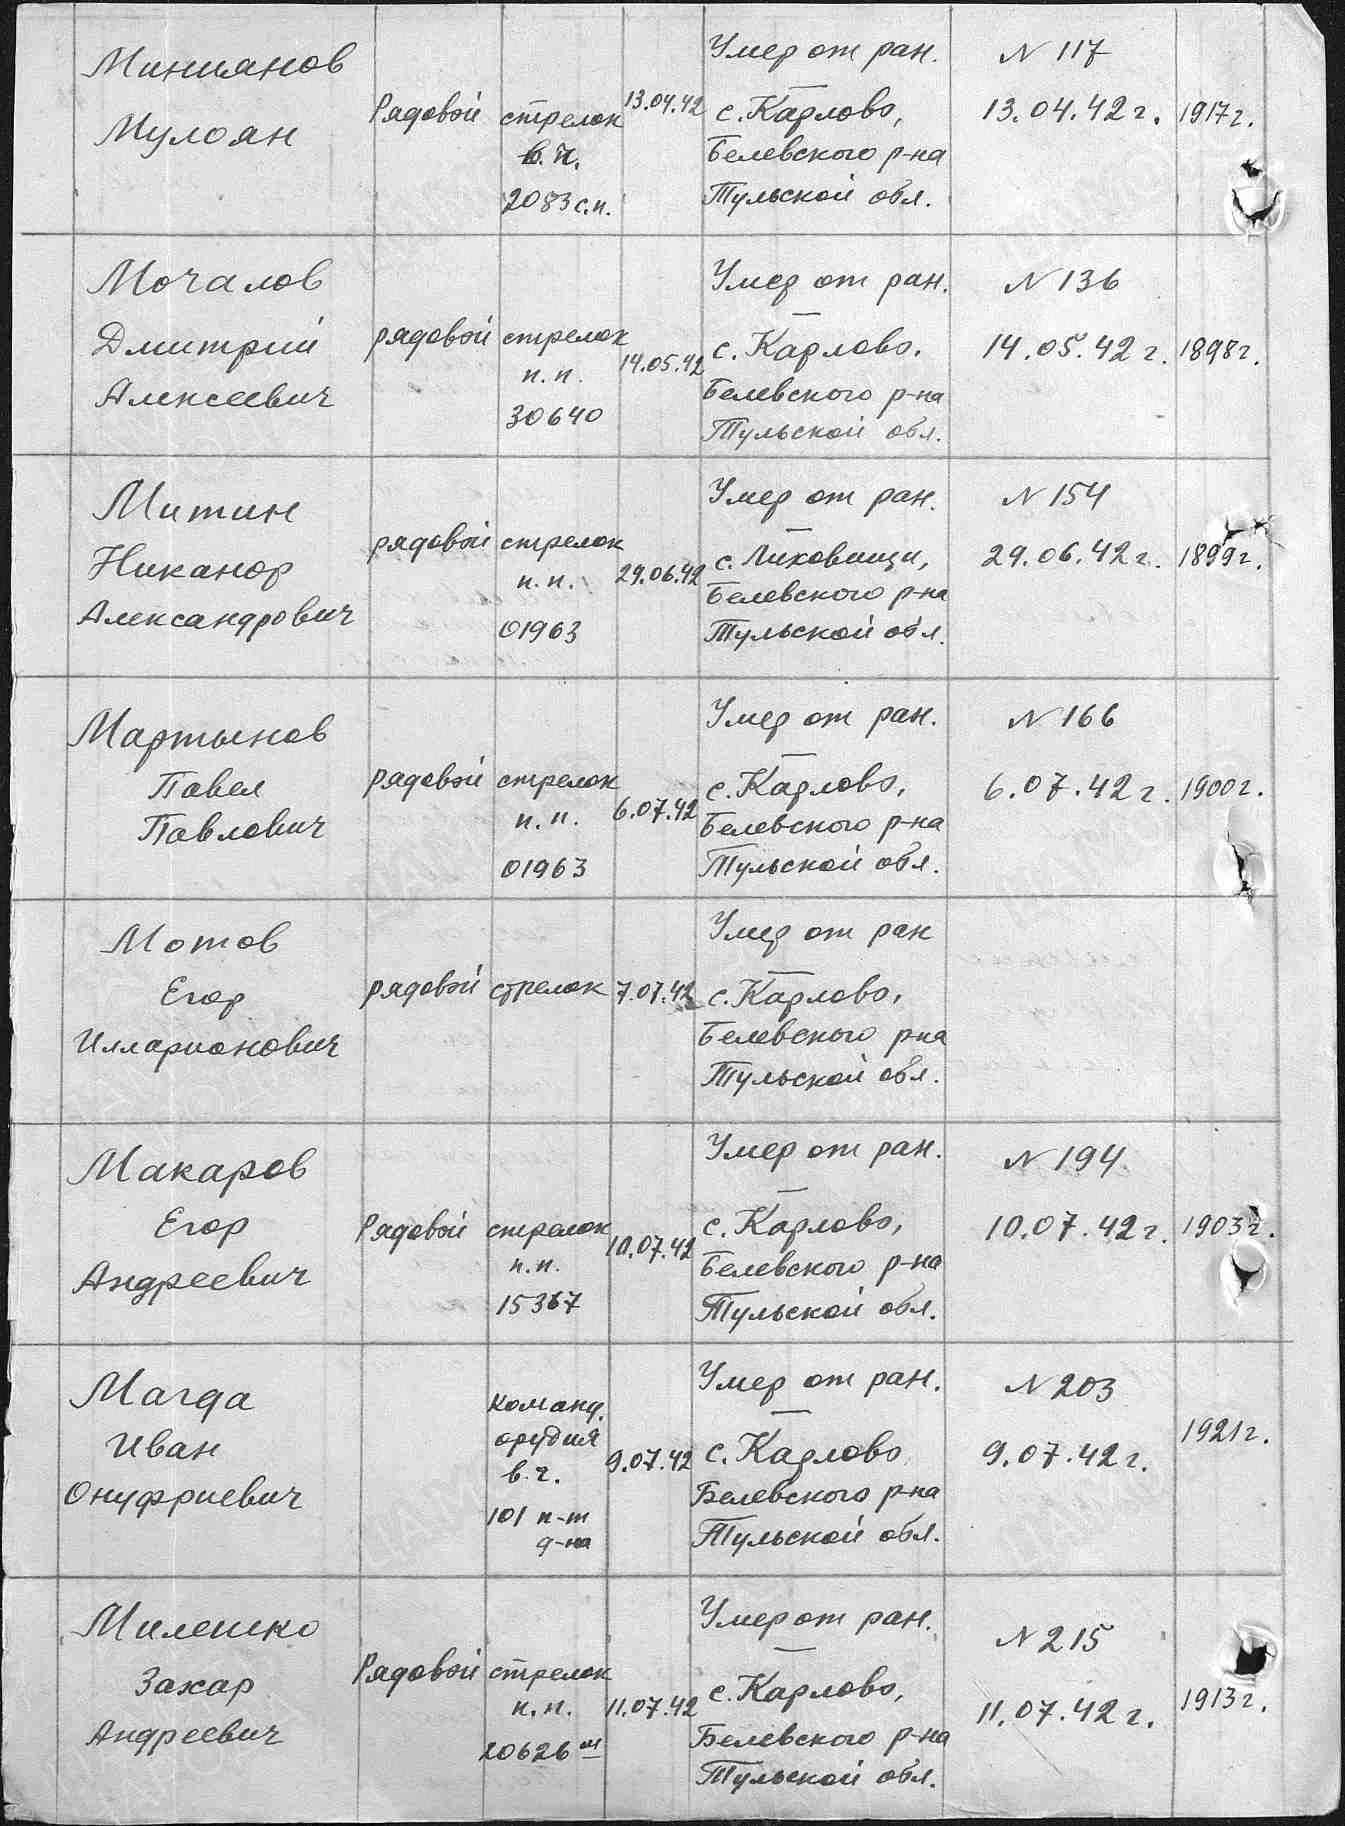 Миниянов
Мулоян
Рядовой
стрелок
в.п.
2083 с.п.
13.04.42
Умер от ран.
с. Карлово,
Белевского р-на
Тульской обл.
N 117
13.04.42 г.
1917 г.
Мочалов
Дмитрий
Алексеевич
рядовой
стрелок
п.п.
30640
14.05.42
Умер от ран.
с. Карлово.
Белевского р-на
Тульской обл.
N 136
14.05.42 г.
1898 г.
Митин
Никанор
Александрович
рядовой
стрелок
п.п.
01963
29.06.42
Умер от ран.
с. Лиховищи,
Белевского р-на
Тульской обл.
N 154
29.06.42 г.
1899 г.
Мартынов
Павел
Павлович
рядовой
стрелок
п.п.
01963
6.07.42
Умер от ран.
с. Карлово,
Белевского р-на
Тульской обл.
N 166
6.07.42 г.
1900 г.
Мотов
Егор
Илларионович
рядовой
стрелок
7.07.42
Умер от ран
с. Карлово,
Белевского р-на
Тульской обл.
Макаров
Егор
Андреевич
Рядовой
стрелок
п.п.
15367
10.07.42
Умер от ран.
с. Карлово,
Белевского р-на
Тульской обл.
N 194
10.07.42 г.
1903 г.
Магда
Иван
Онуфриевич
команд.
орудия
в.г.
101 п-т
д-на
9.07.42
Умер от ран.
с. Карлово
Белевского р-на
Тульской обл.
N 203
9.07.42 г.
1921 г.
Милешко
Захар
Андреевич
Рядовой
стрелок
п.п.
20626 "ш"
11.07.42
Умер от ран.
с. Карлово,
Белевского р-на
Тульской обл.
N 215
11.07.42 г.
1913 г.